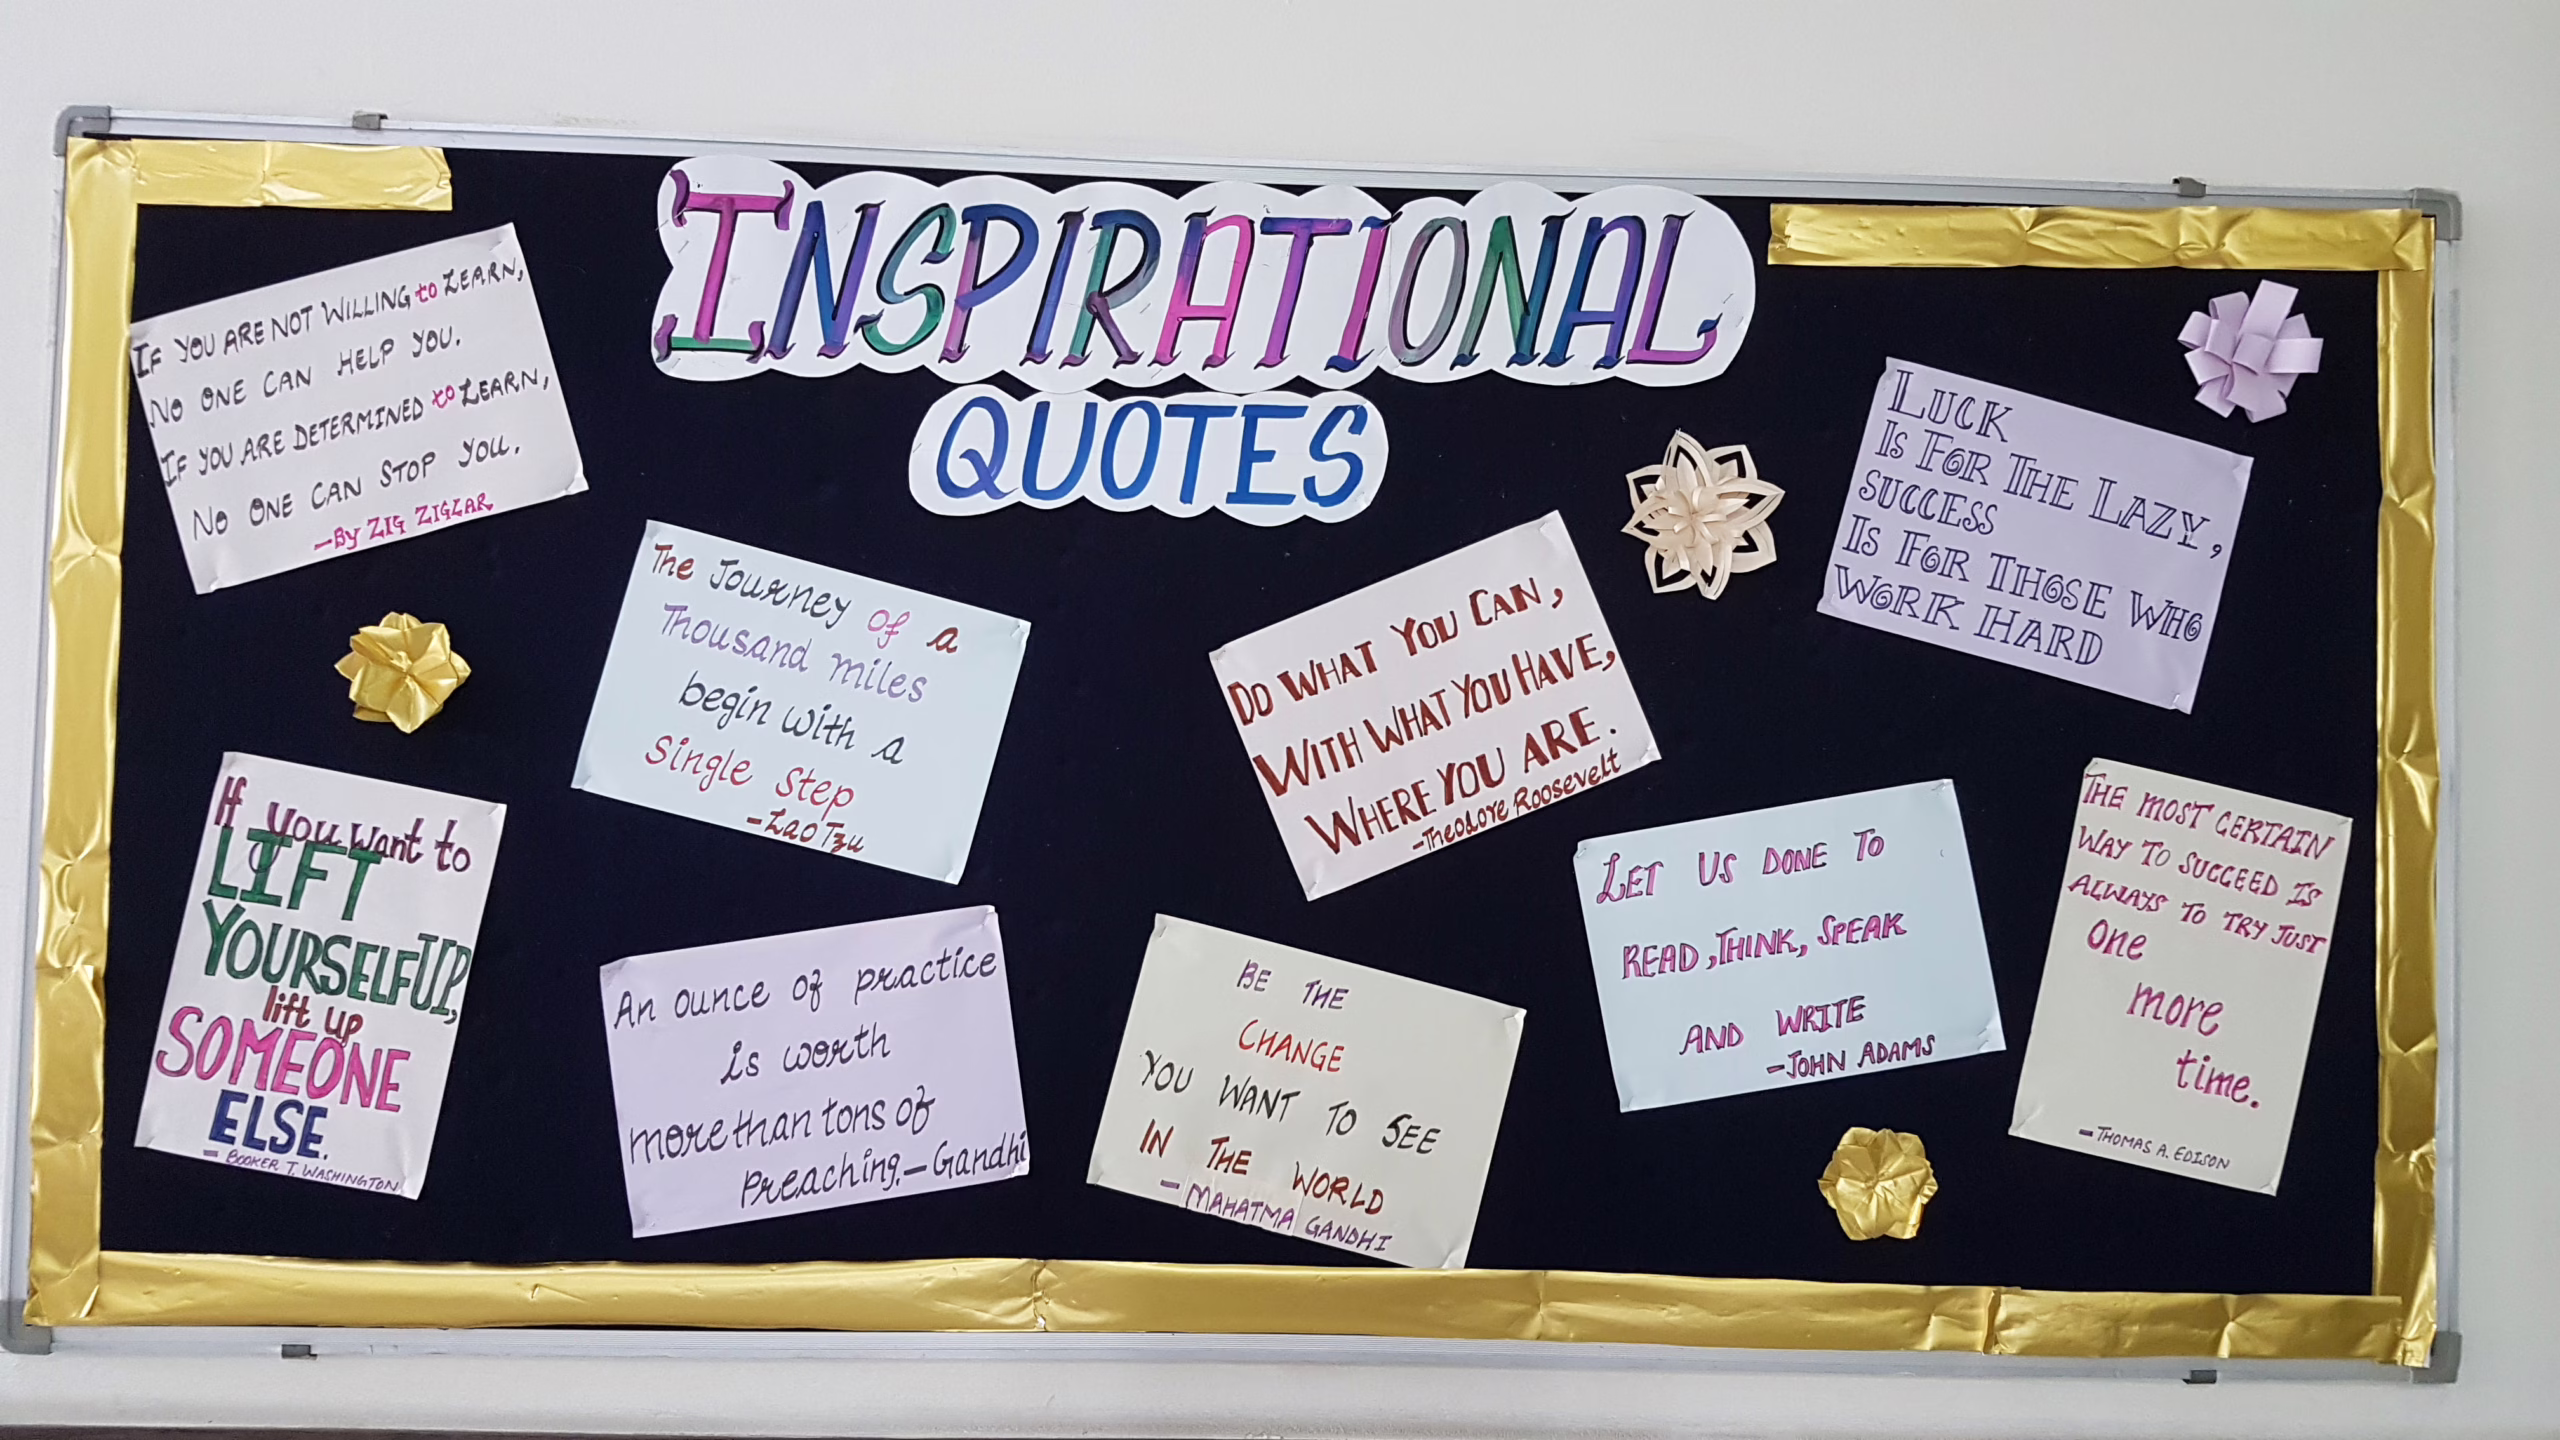 INSPIRATIONAL
QUOTES
IF YOU ARE NOT WILLING to LEARN,
NO ONE CAN HELP YOU.
IF YOU ARE DETERMINED to LEARN,
NO ONE CAN STOP YOU.
-By ZIG ZIGLAR
The Journey of a
Thousand miles
begin with a
single step
-Lao Tzu
DO WHAT YOU CAN,
WITH WHAT YOU HAVE,
WHERE YOU ARE.
-Theodore Roosevelt
LUCK
IS FOR THE LAZY,
SUCCESS
IS FOR THOSE WHO
WORK HARD
If you want to
LIFT
YOURSELF UP,
lift up
SOMEONE
ELSE.
- BOOKER T. WASHINGTON
An ounce of practice
is worth
more than tons of
Preaching.-Gandhi
BE THE
CHANGE
YOU WANT TO SEE
IN THE WORLD
- MAHATMA GANDHI
LET US DONE TO
READ, THINK, SPEAK
AND WRITE
-JOHN ADAMS
THE MOST CERTAIN
WAY TO SUCCEED IS
ALWAYS TO TRY JUST
One
more
time.
-THOMAS A. EDISON